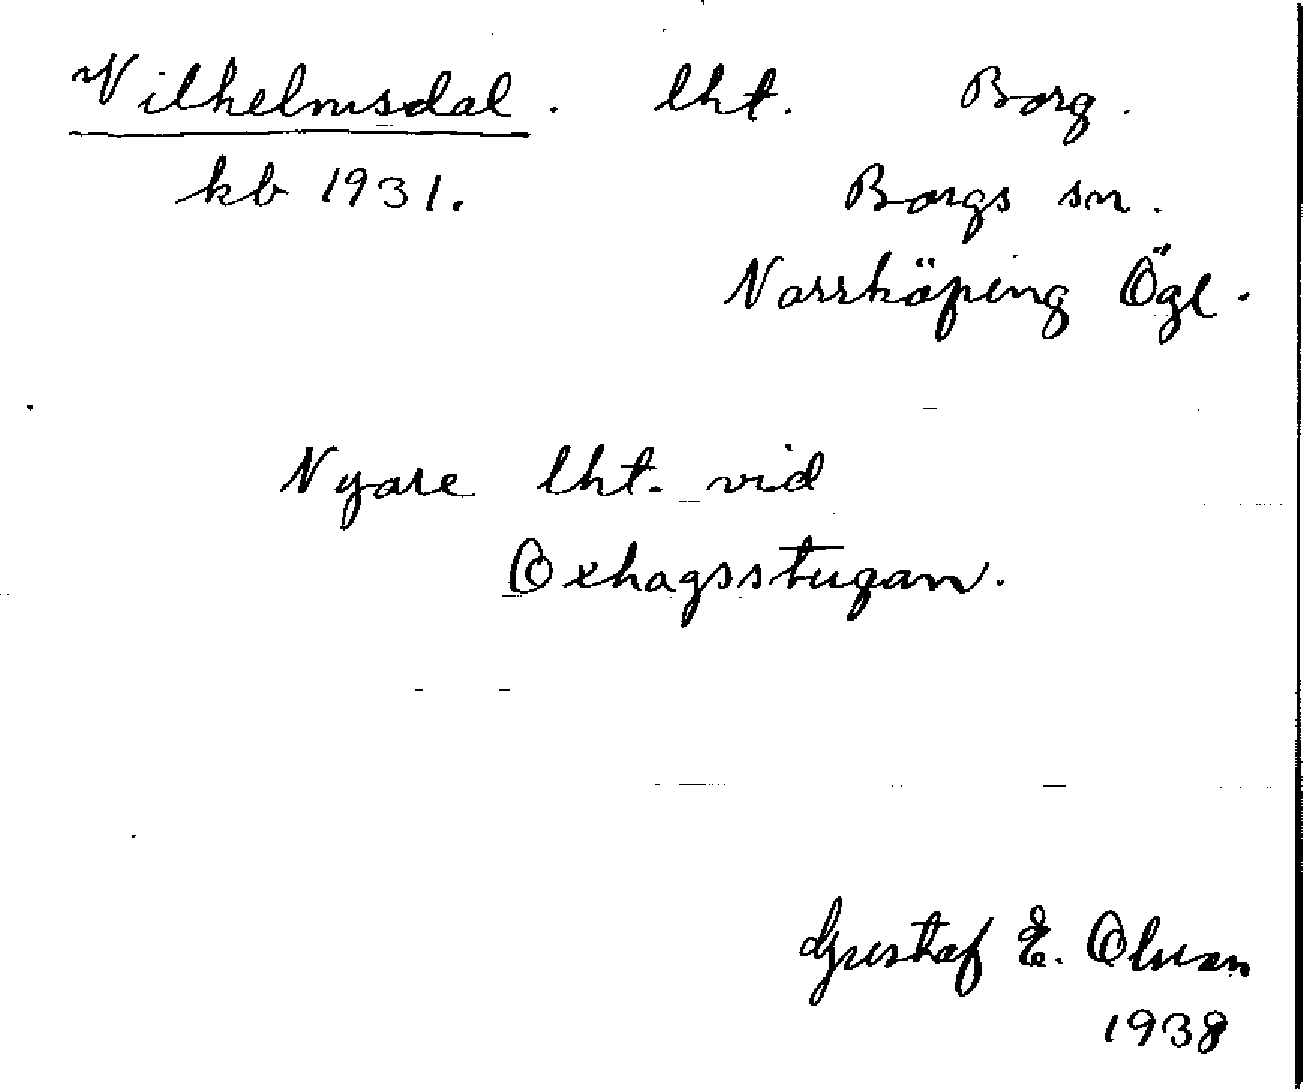 Vilhelmsdal. lht. Borg.
kb 1931. Borgs sn.
Norrköping Ögl.
Nyare lht. vid
Oxhagsstugan.
Gustaf E. Olsson
1938